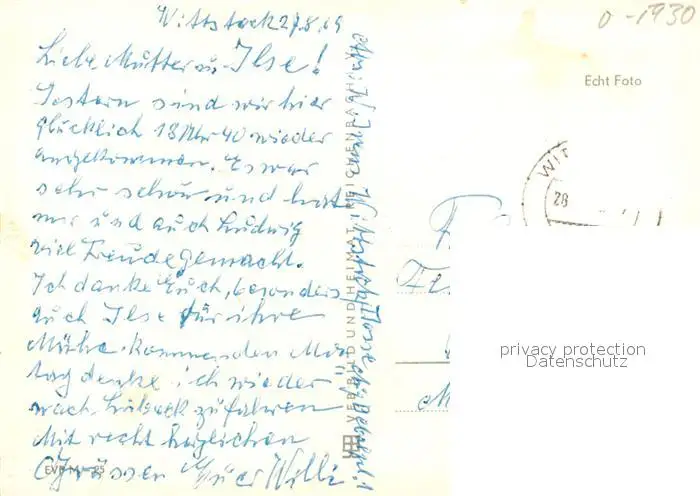 Wittstock 27.8.69
Liebe Mutter u. Ilse!
Gestern sind wir hier
glücklich 18 Uhr 40 wieder
angekommen. Es war
sehr schön und hat
mir und auch Ludwig
viel Freude gemacht.
Ich danke Euch, besonders
auch Ilse für ihre
Mühe. Kommenden Mon
tag denke ich wieder
nach Lübeck zu fahren
Mit recht herzlichen
Grüssen Euer Willi
VERBILD UND HEIMAT REICHENBACH
0-1930
Echt Foto
WIT
28
privacy protection
Datenschutz